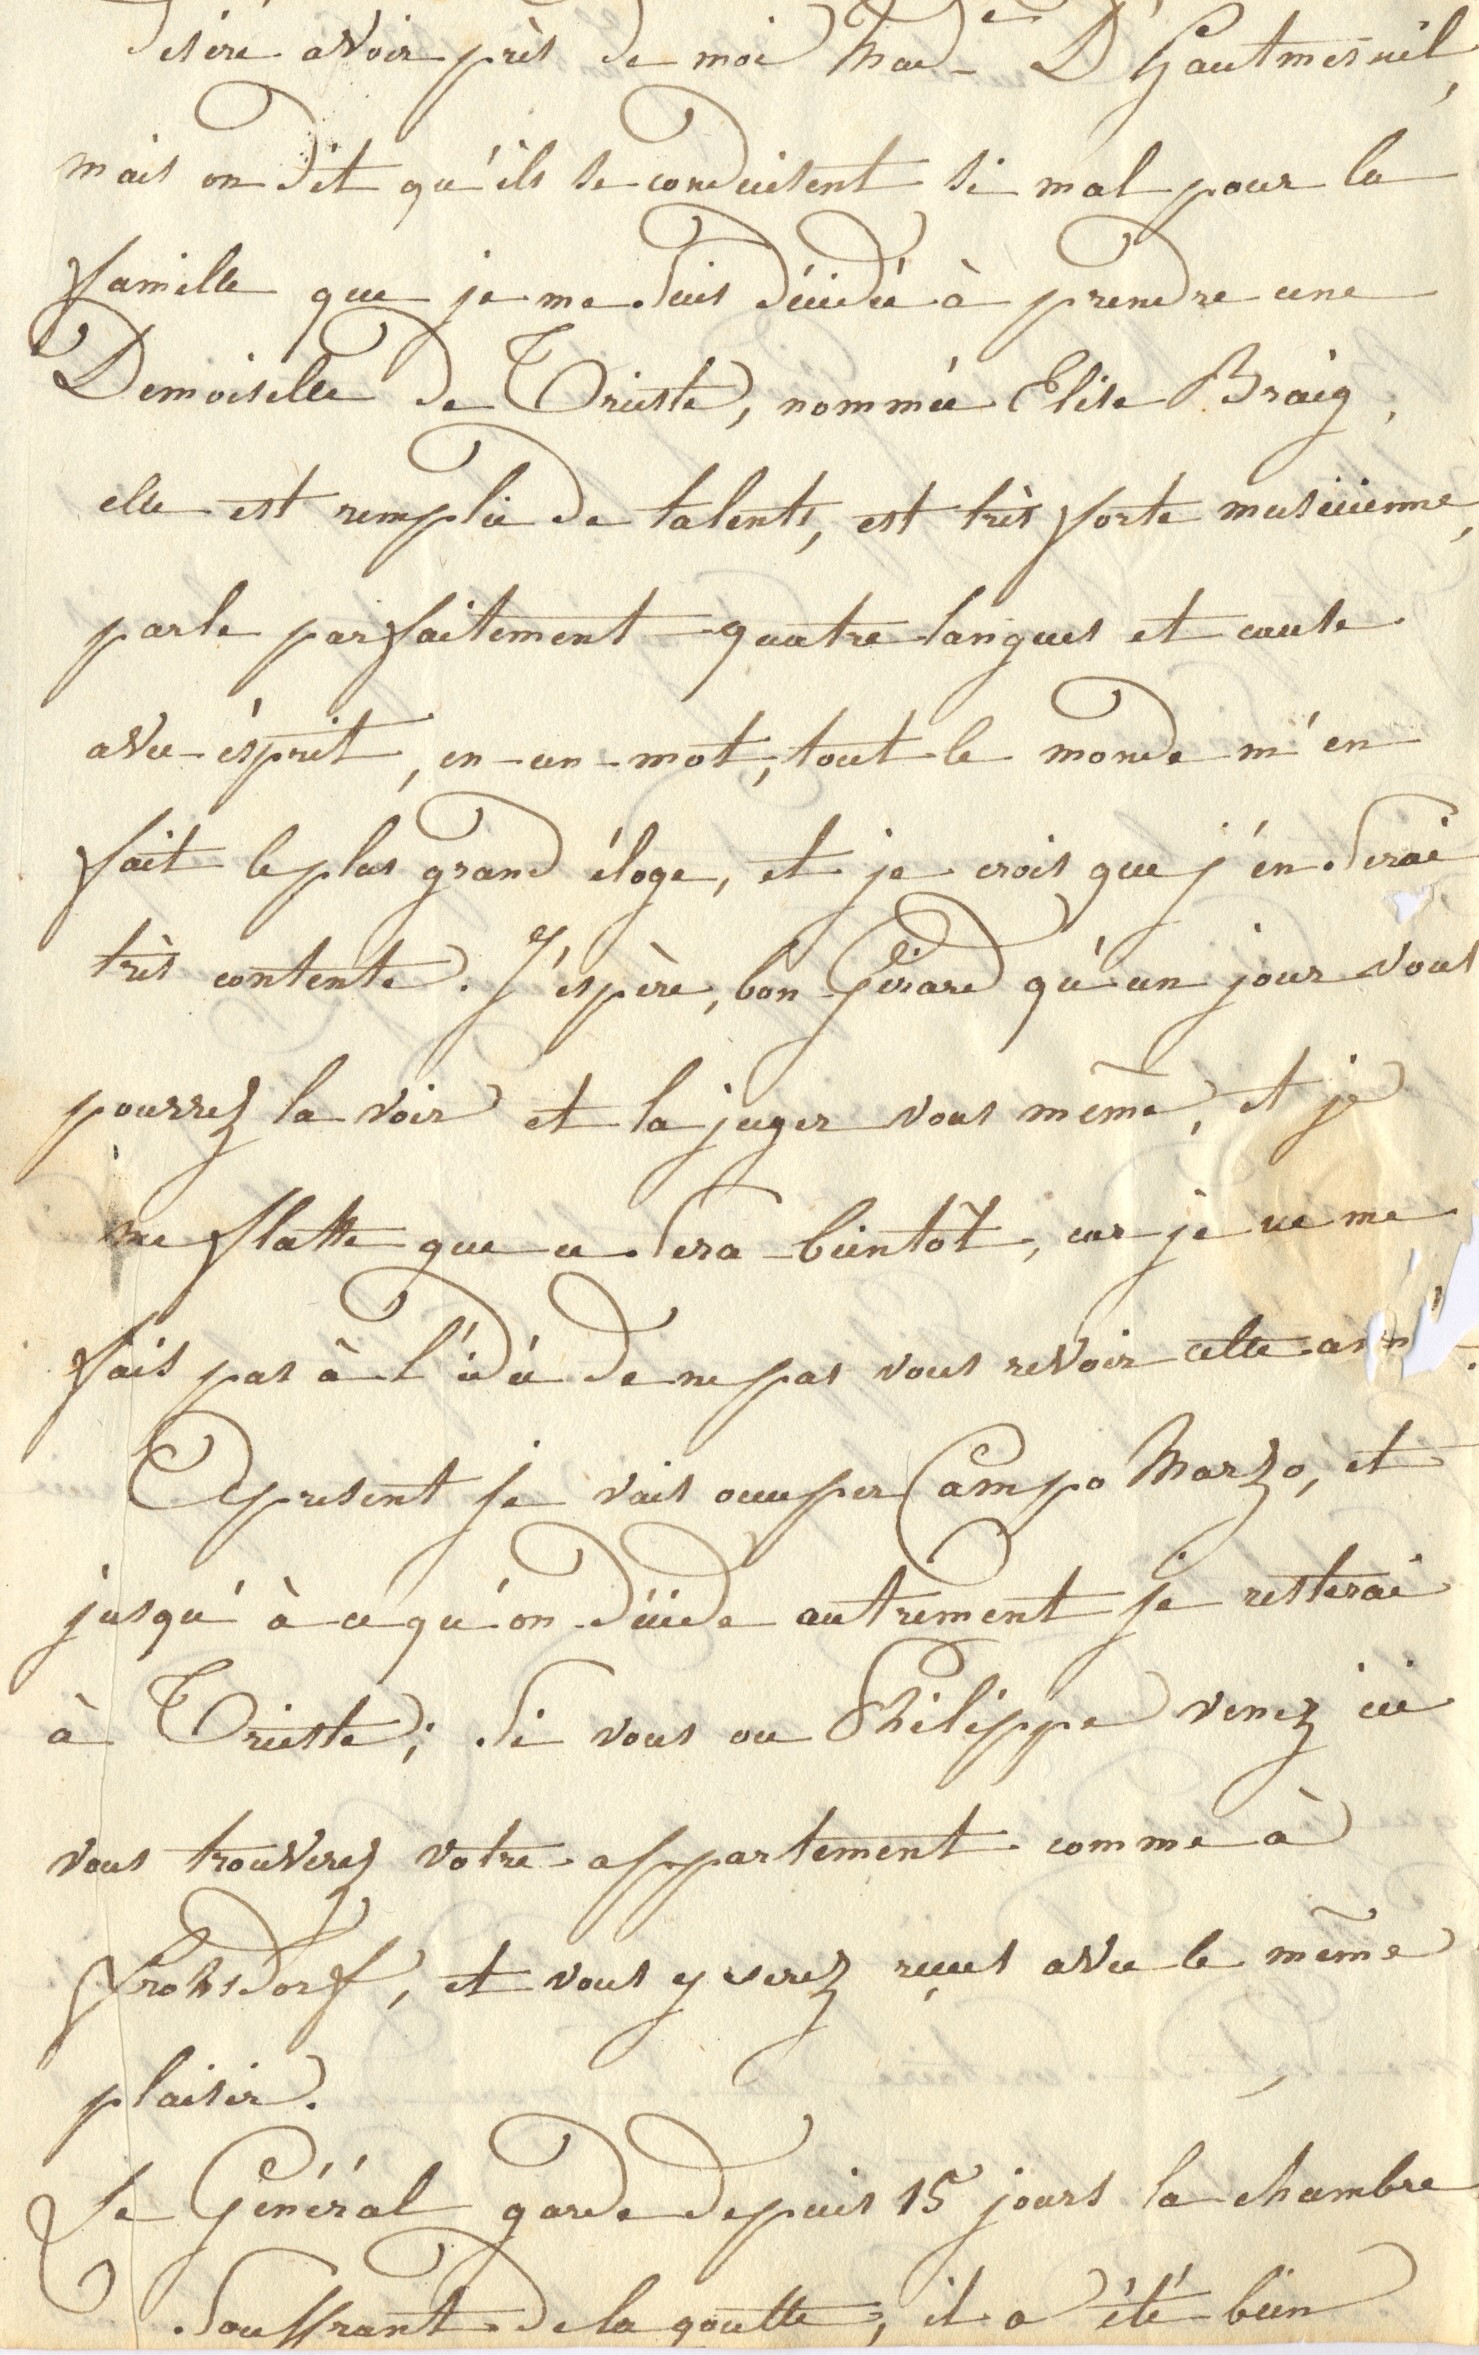 desire avoir près de moi Made D'Hautmesnil,
mais on dit qu'ils se conduisent si mal pour la
famille que je me suis décidée à prendre une
Demoiselle de Trieste, nommée Elise Braig,
elle est remplie de talents, est très forte musicienne,
parle parfaitement quatre langues et cause
avec ésprit, en un mot, tout le monde m'en
fait le plus grand éloge, et je crois que j'en serai
très contente. J'espère, bon Gérard qu'un jour vous
pourrez la voir et la juger vous même, et je
me flatte que ce sera bientôt, car je ne me
fais pas à l'idée de ne pas vous revoir cette ann
Apresent je vais occuper Campo Marzo, et
jusqu'à ce qu'on décide autrement je resterai
à Trieste; si vous ou Philippe venez ici
vous trouverez votre appartement comme à
Frohsdorf, et vous y serez reçus avec le même
plaisir.
Le Général garde depuis 15 jours la chambre
souffrant de la goutte, il a été bien